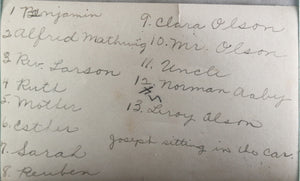 1 Benjamin
2 Alfred Mathwig
3. Rev. Larson
4 Ruth
5. Mother
6. Esther
7. Sarah
8 Reuben
9. Clara Olson
10. Mr. Olson
11. Uncle
12. Norman Aaby
13. Leroy Olson
Joseph sitting in the car.